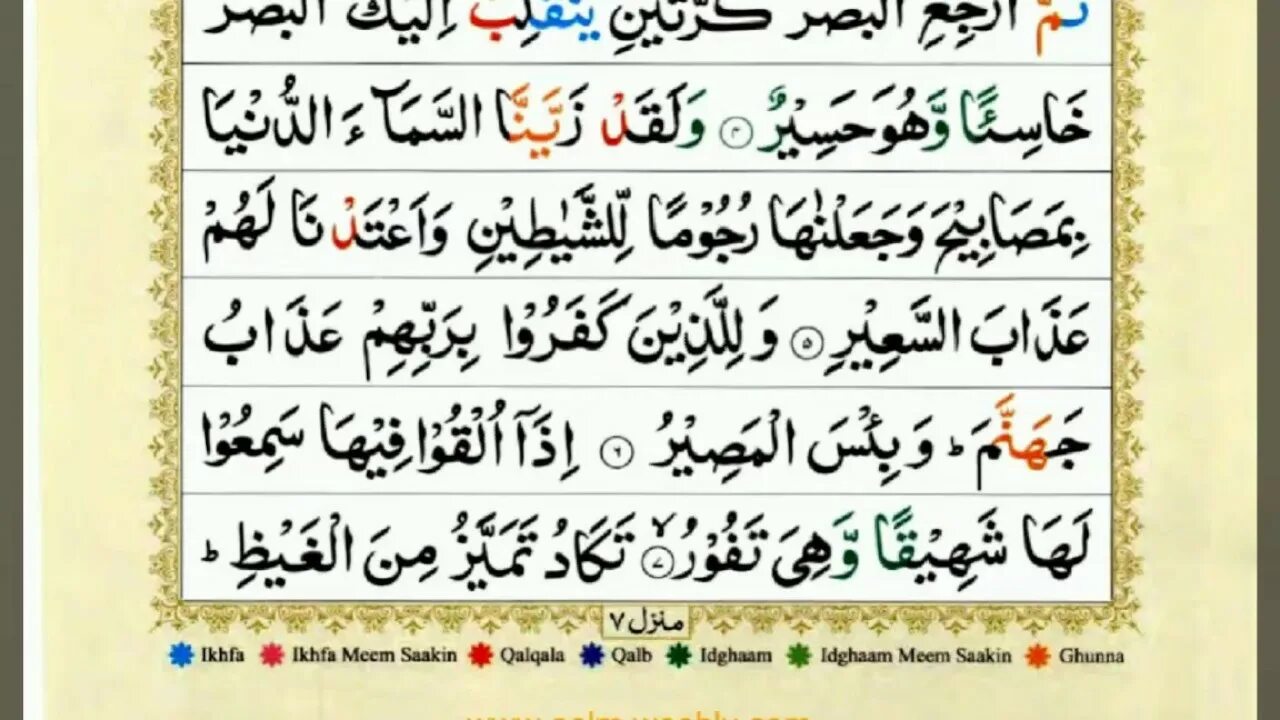 ثُمَّ ارْجِعِ الْبَصَرَ كَرَّتَيْنِ يَنْقَلِبْ اِلَيْكَ الْبَصَرُ
خَاسِئًا وَّهُوَ حَسِيْرٌ ۴ وَلَقَدْ زَيَّنَّا السَّمَآءَ الدُّنْيَا
بِمَصَابِيْحَ وَجَعَلْنٰهَا رُجُوْمًا لِّلشَّيٰطِيْنِ وَاَعْتَدْنَا لَهُمْ
عَذَابَ السَّعِيْرِ ۵ وَلِلَّذِيْنَ كَفَرُوْا بِرَبِّهِمْ عَذَابُ
جَهَنَّمَ ؕ وَبِئْسَ الْمَصِيْرُ ۶ اِذَاۤ اُلْقُوْا فِيْهَا سَمِعُوْا
لَهَا شَهِيْقًا وَّهِىَ تَفُوْرُ ۙ ۷ تَكَادُ تَمَيَّزُ مِنَ الْغَيْظِ ؕ
منزل ۷
Ikhfa Ikhfa Meem Saakin Qalqala Qalb Idghaam Idghaam Meem Saakin Ghunna